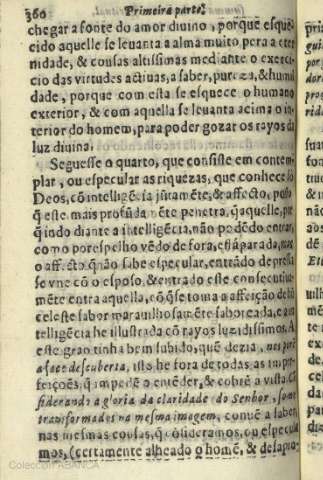 360 Primeira parte.
chegar a fonte do amor divino, porque esque
cido aquelle se levanta a alma muito pera a eter
nidade, & cousas altissimas mediante o exerci
cio das virtudes activas, a saber, pureza, & humil
dade, porque com esta se esquece o humano
exterior, & com aquella se levanta acima o in
terior do homem, para poder gozar os rayos da
luz divina.
Seguesse o quarto, que consiste em contem
plar, ou especular as riquezas, que conhece de
Deos, cõ intelligẽcia jũtamẽte, & affecto, posto
q̃ este mais profũdamẽte penetra, q̃ aquelle, por
q̃ indo diante a intelligẽcia, não podẽdo entrar,
como por espelho vẽdo de fora, està parada, mas
o affecto q̃ não sabe especular, entrãdo depressa
se vne cõ o esposo, & entrado este consecutiua
mẽte entra aquella, cõ q̃ se toma a affeição de hũ
celeste sabor marauilhosamẽte saboreada, e a in
telligẽcia he illustrada cõ rayos luzidissimos. A
este grao tinha bem subido, quẽ dezia, nos porẽ
a face descuberta, isto he fora de todas as imper
feições, q̃ impedẽ o entẽder, & cobrẽ a vista.
fiderando a gloria da claridade do Senhor, somos
transformados na mesma imagem, convẽ a saber,
nas mesmas cousas, q̃ cõsideramos, ou especula
mos, (certamente alheado o homẽ, & desapro
Colección ABANCA